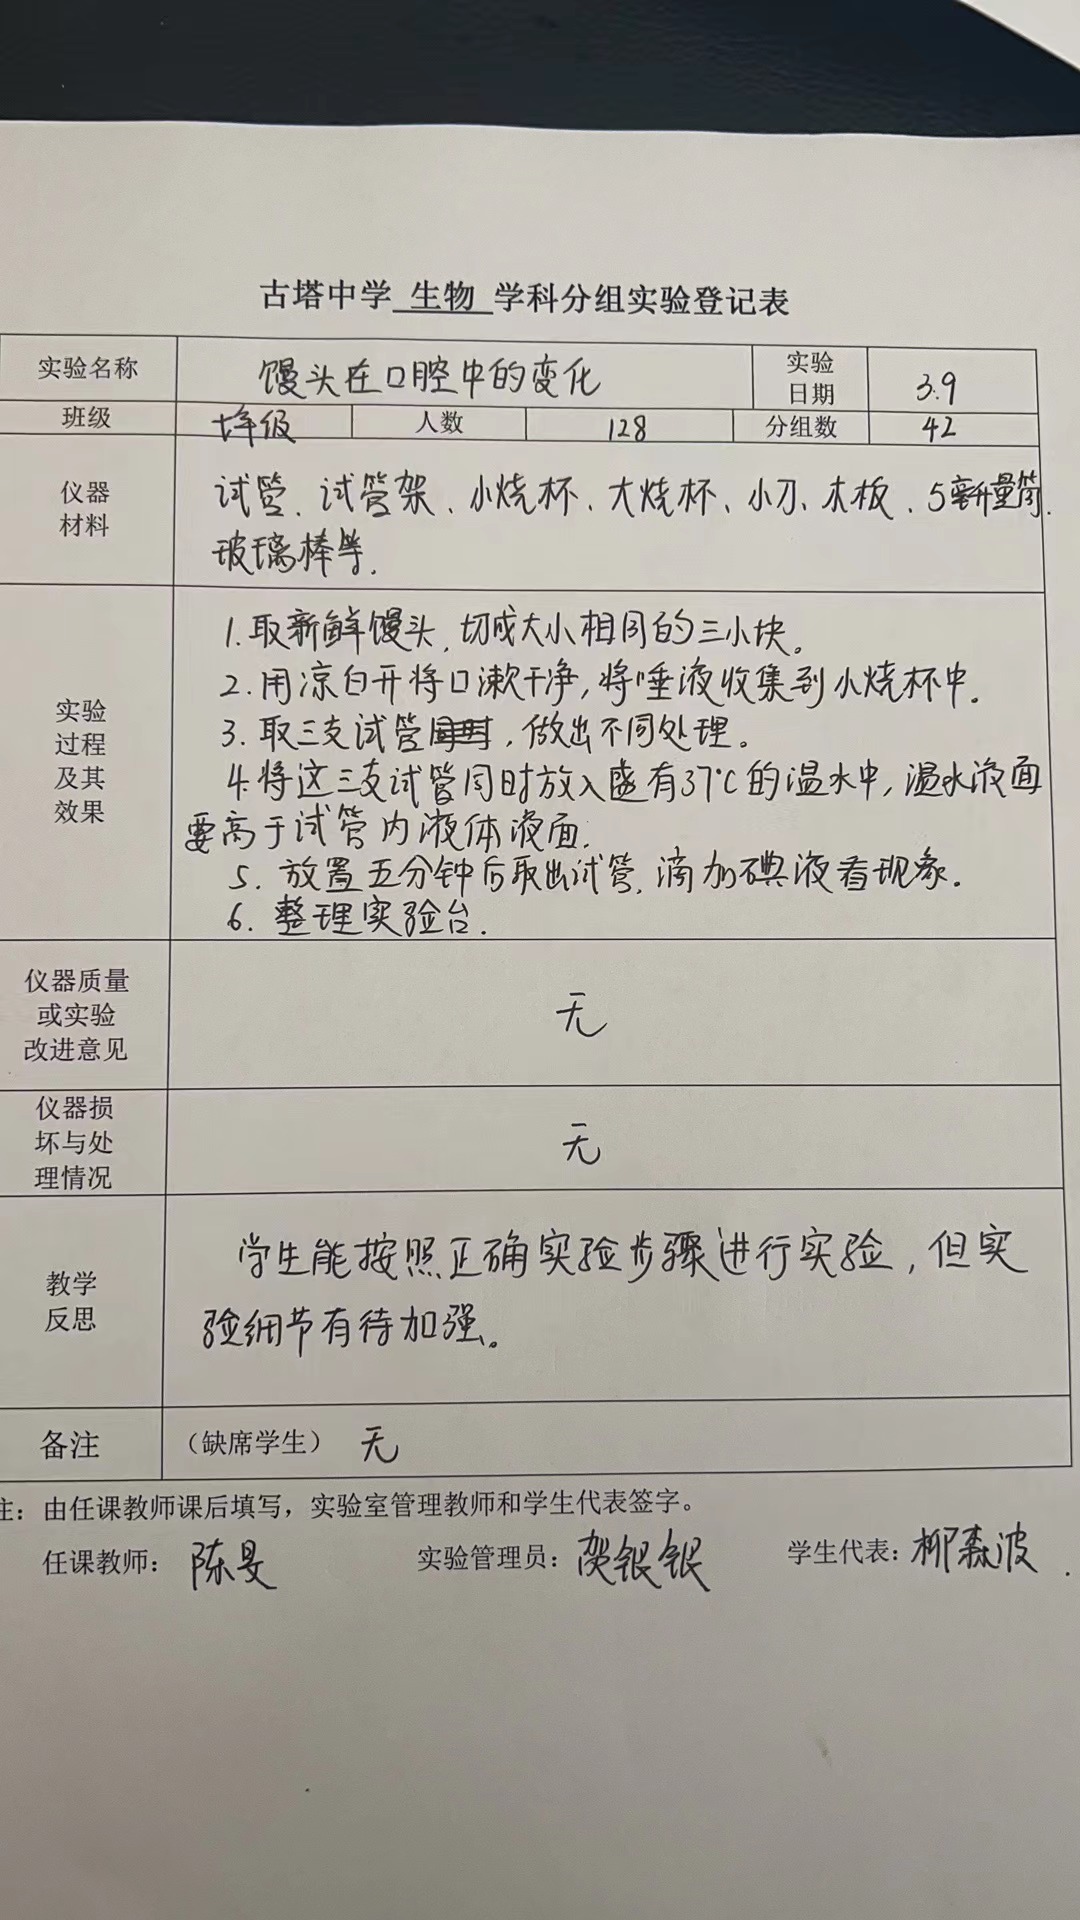 古塔中学 生物 学科分组实验登记表
实验名称 馒头在口腔中的变化 实验日期 3.9
班级 七年级 人数 128 分组数 42
仪器材料 试管、试管架、小烧杯、大烧杯、小刀、木板、5毫升量筒、
玻璃棒等.
实验过程及其效果
1.取新鲜馒头,切成大小相同的三小块。
2.用凉白开将口漱干净,将唾液收集到小烧杯中.
3.取三支试管,做出不同处理。
4.将这三支试管同时放入盛有37℃的温水中,温水液面
要高于试管内液体液面.
5.放置五分钟后取出试管,滴加碘液看现象.
6.整理实验台.
仪器质量或实验改进意见 无
仪器损坏与处理情况 无
教学反思 学生能按照正确实验步骤进行实验,但实
验细节有待加强。
备注 (缺席学生) 无
注:由任课教师课后填写,实验室管理教师和学生代表签字。
任课教师:陈旻 实验管理员:贺银银 学生代表:柳森波